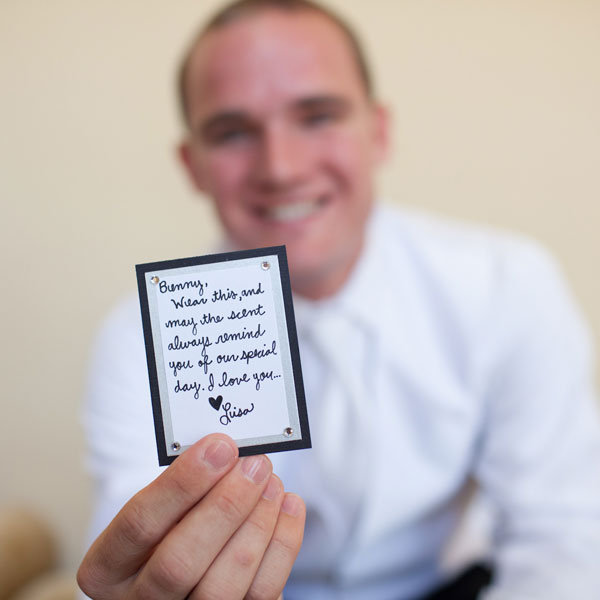 Bunny,
Wear this, and
may the scent
always remind
you of our special
day. I love you...
♥ Lisa